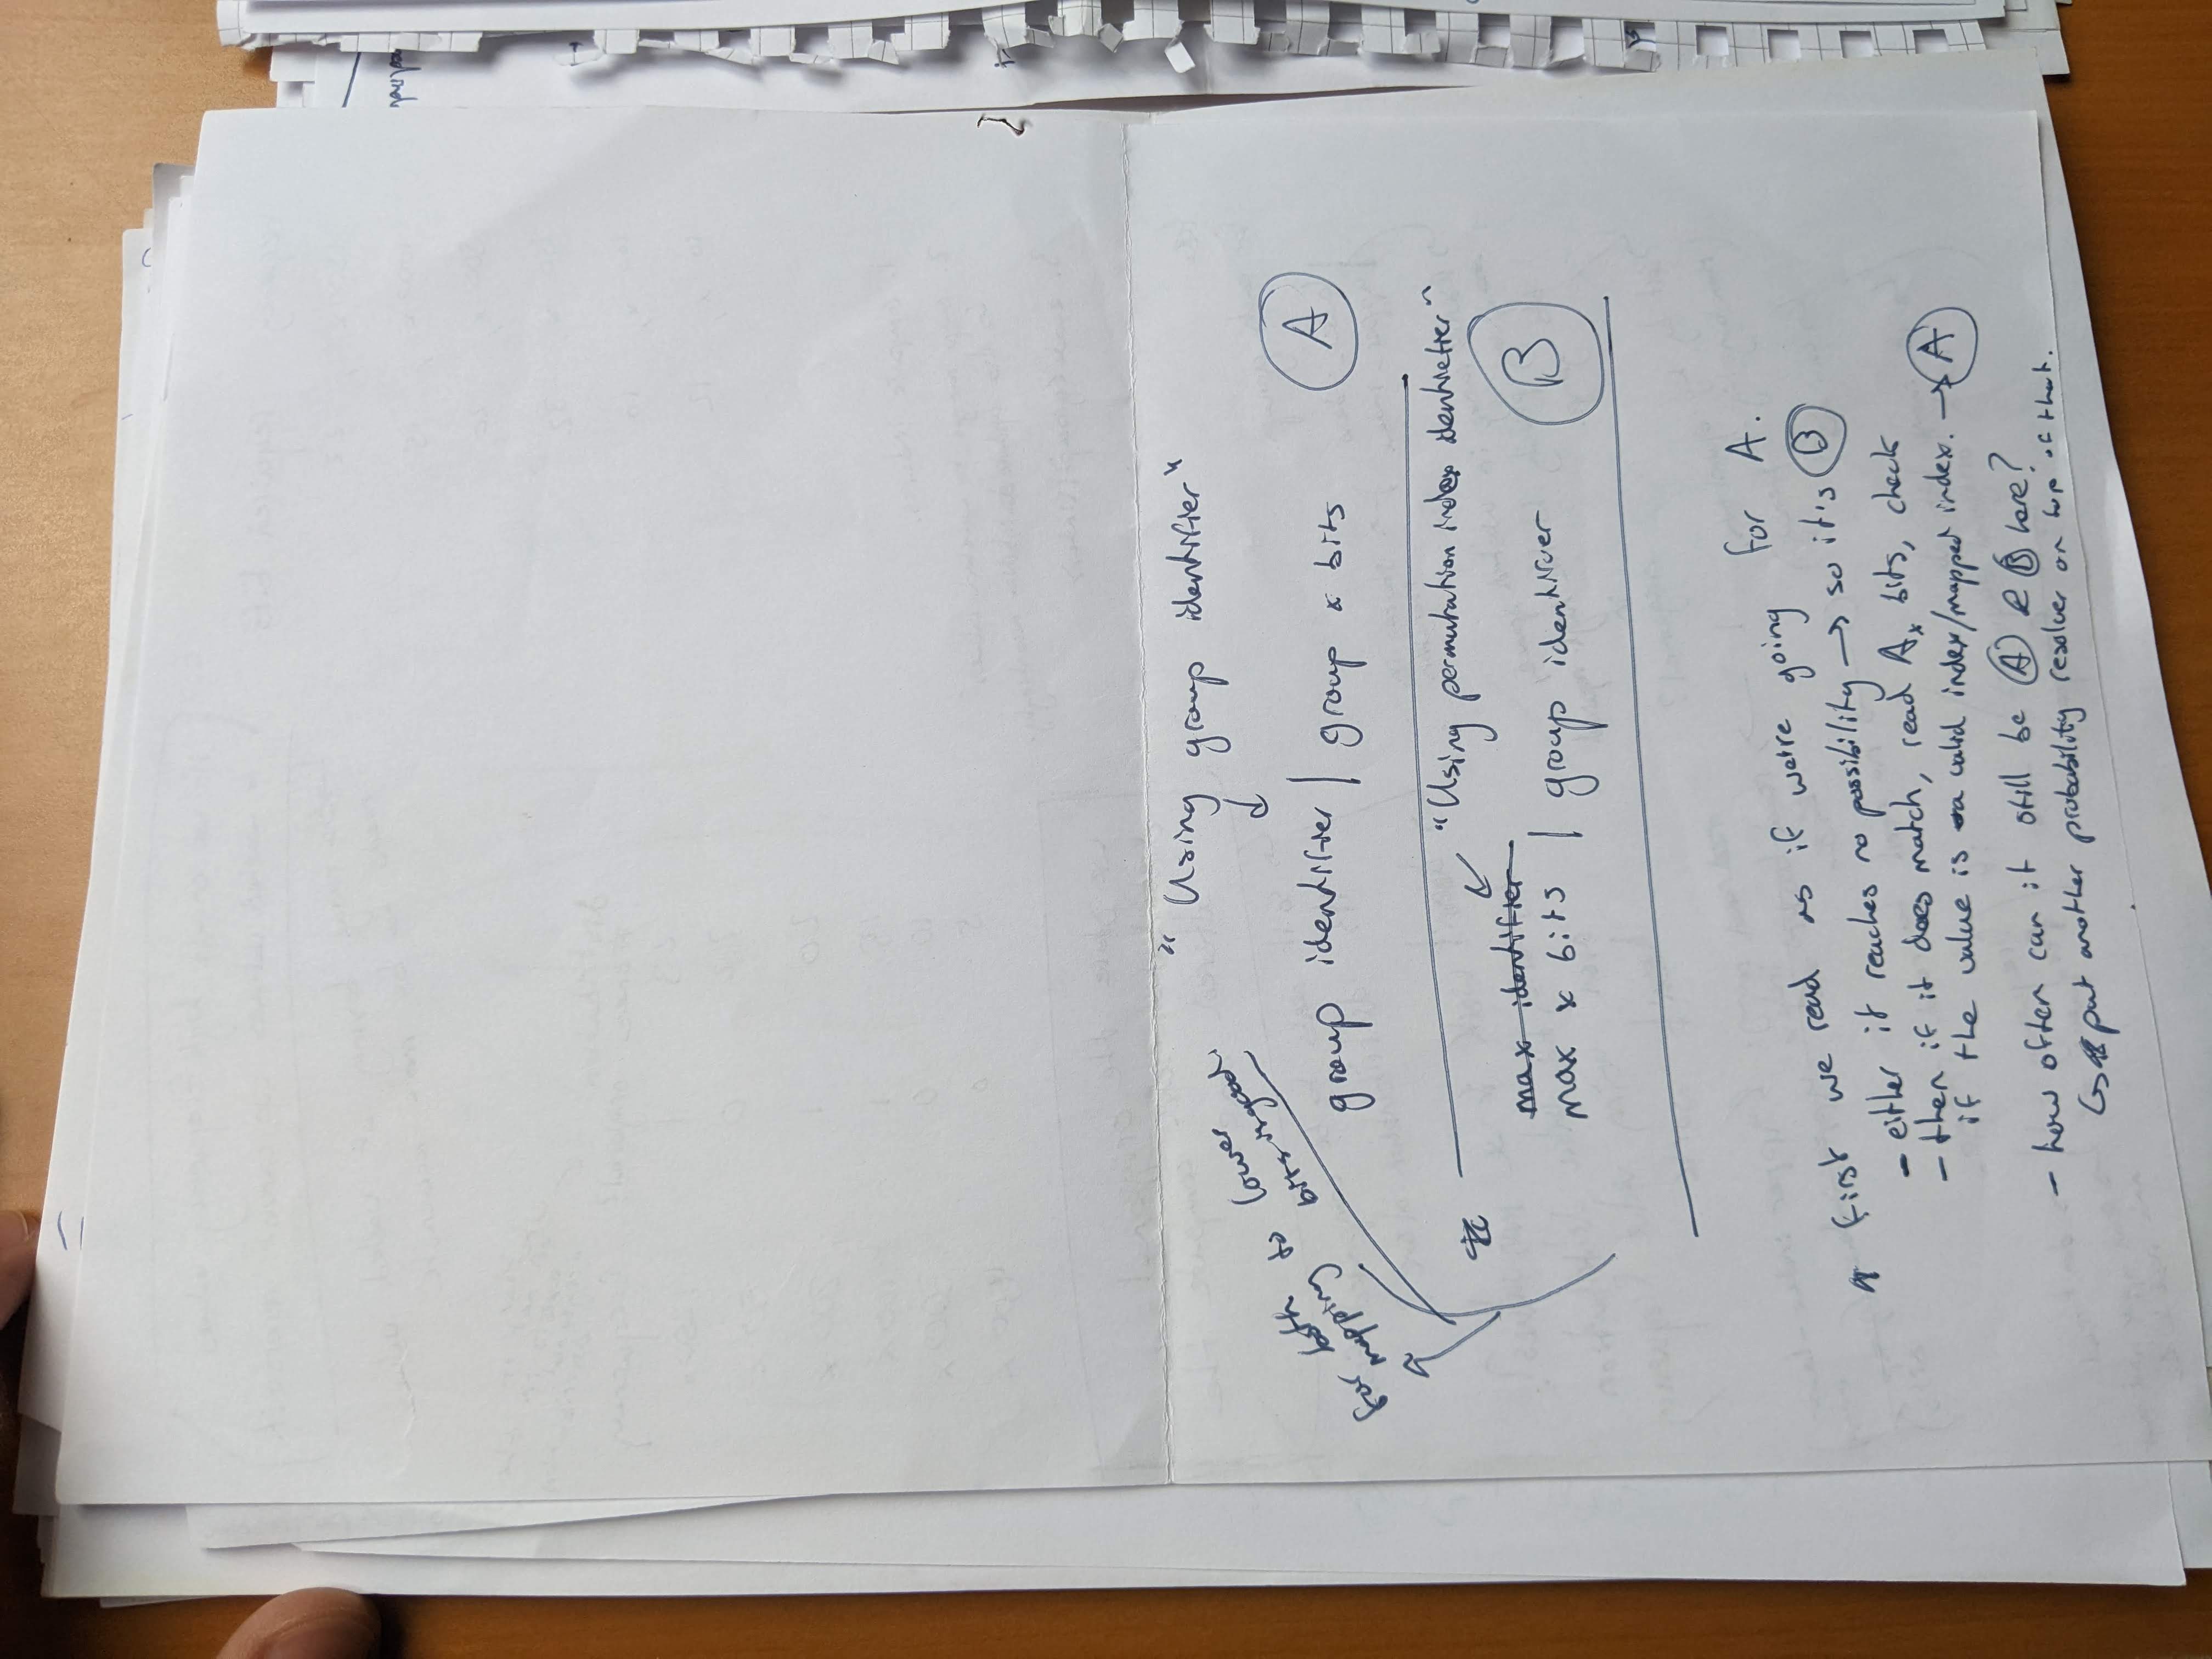 "Using group identifier"
lower
both to bits is good
for mapping
group identifier | group x bits
A
"Using permutation index identifier"
max identifier
max x bits | group identifier
B
first we read as if we're going for A.
- either it reaches no possibility → so it's B
- then if it does match, read Ax bits, check
if the value is a valid index/mapped index. → A
- how often can it still be A & B here?
↳ put another probability resolver on top of that.